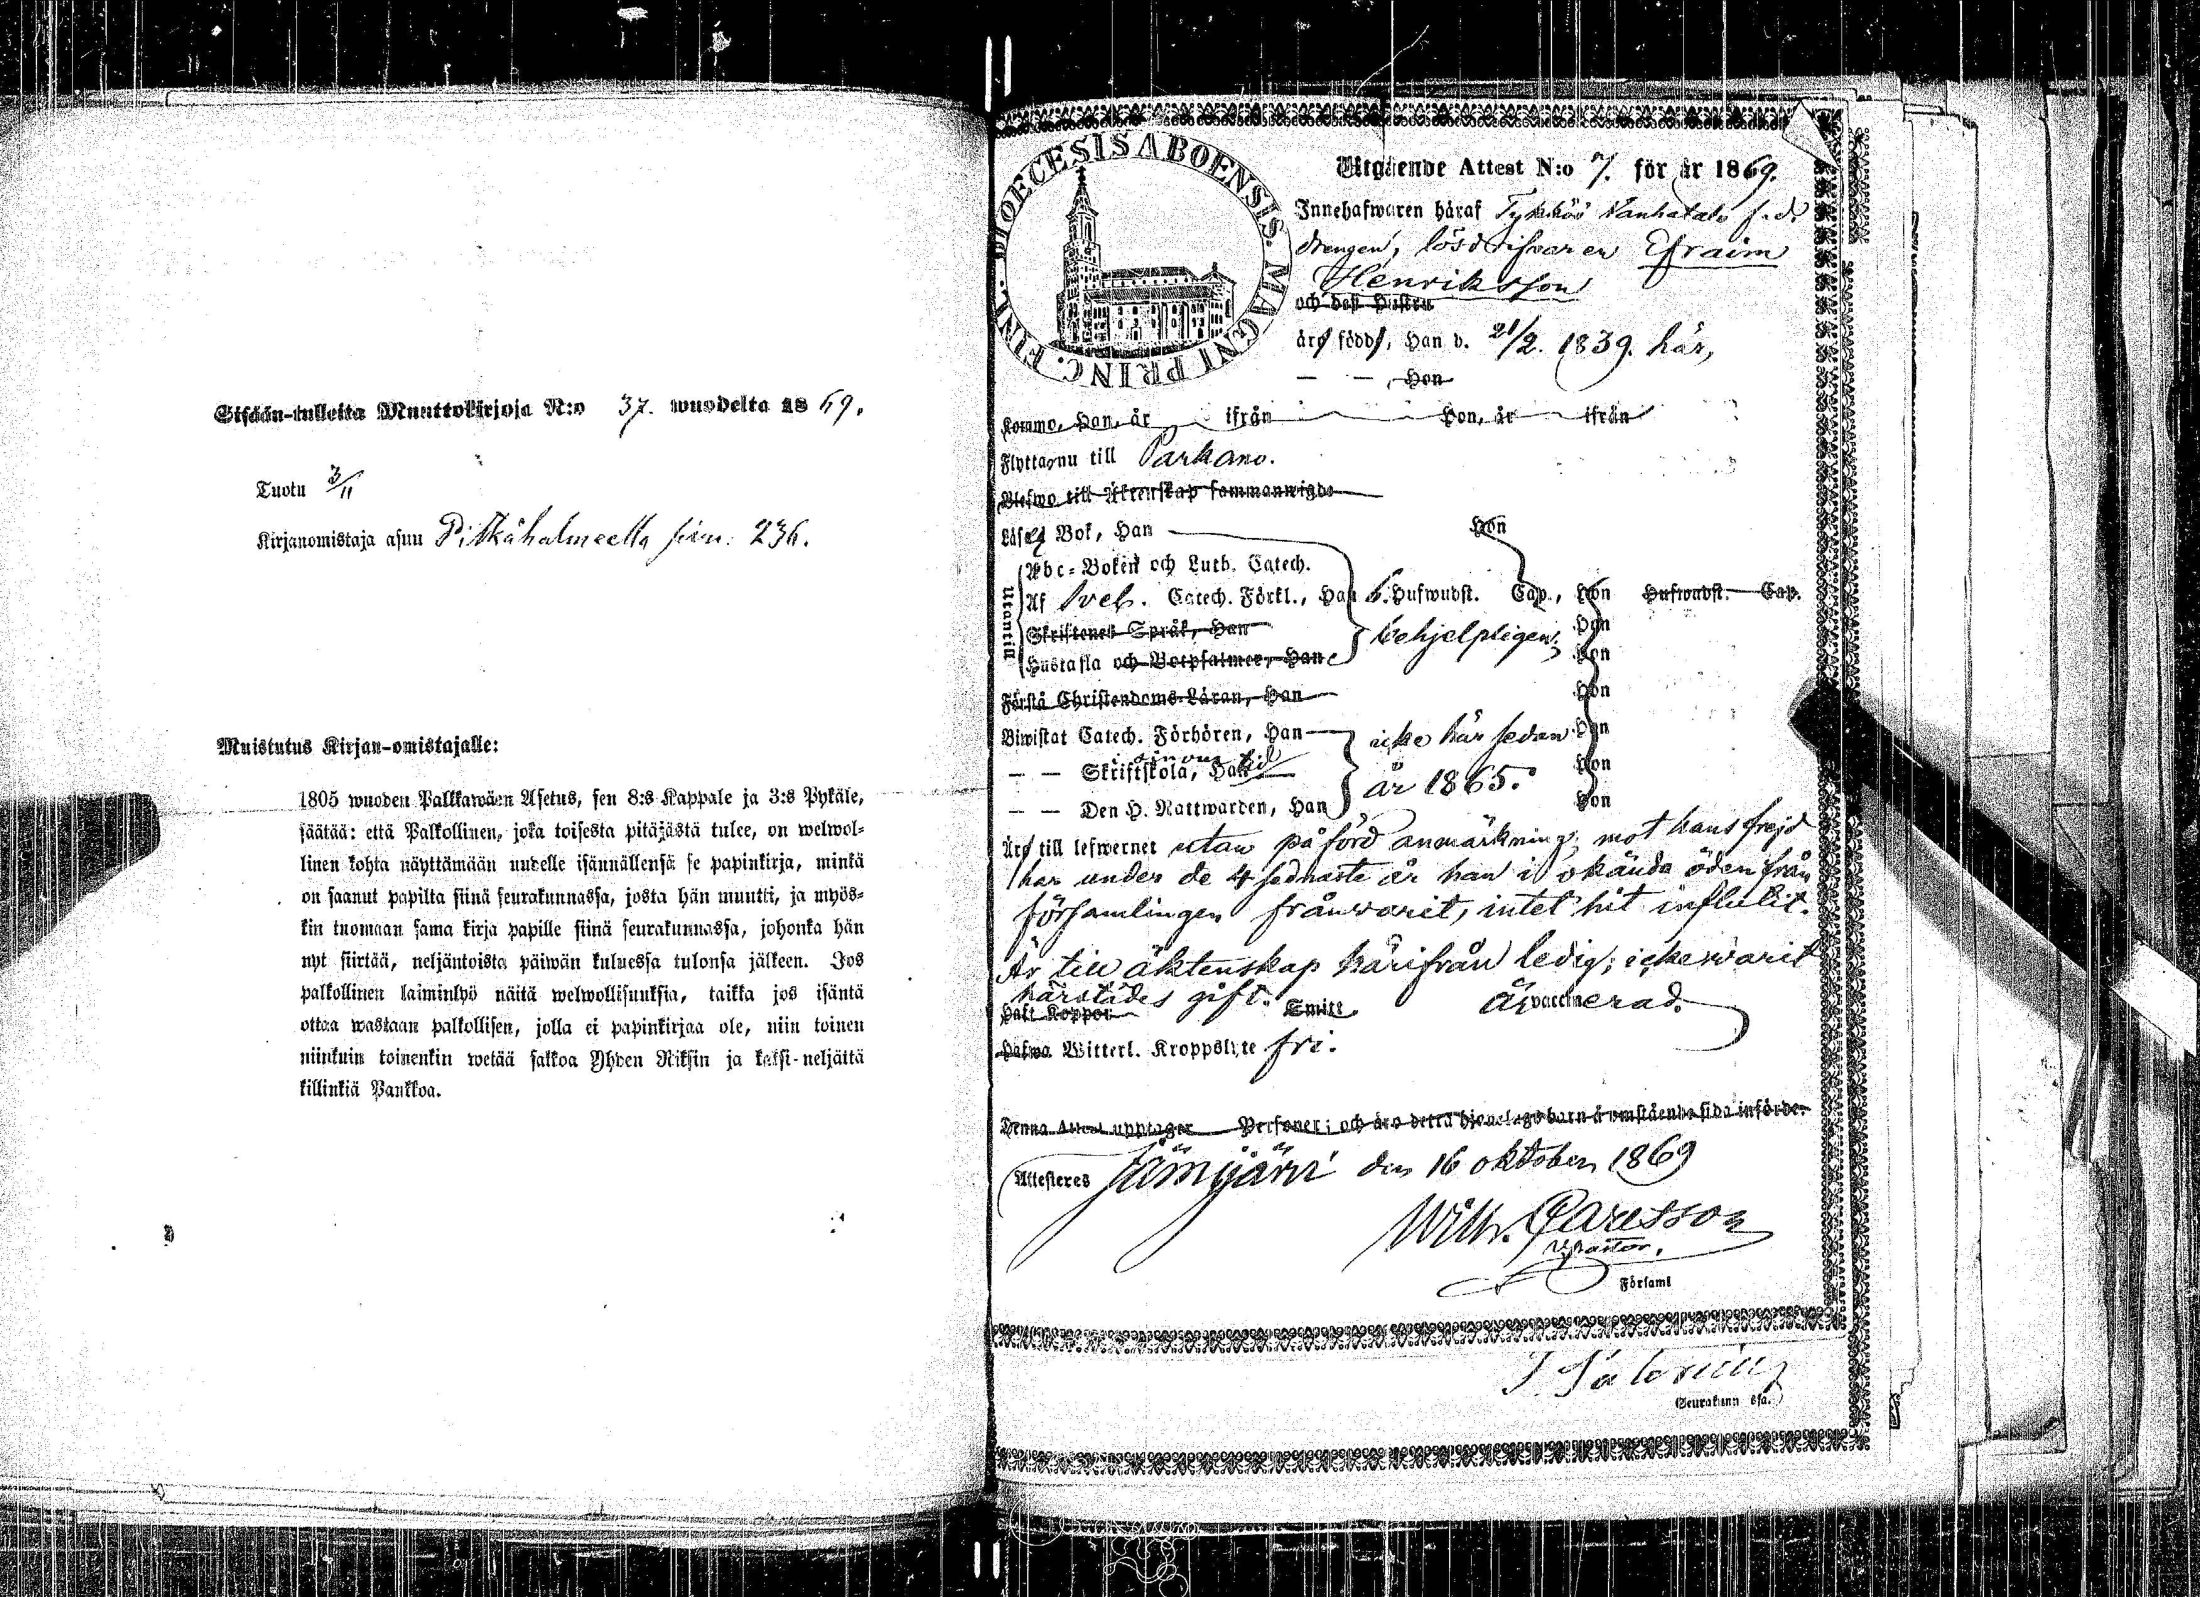 Sisään-tulleita Muuttokirjoja N:o 37. wuodelta 1869.
Tuotu 3/11
Kirjanomistaja asuu Pitkähalmeella siv. 236.
Muistutus Kirjan-omistajalle:
1805 wuoden Palkkawäen Asetus, sen 8:s Kappale ja 3:s Pykäle,
säätää: että Palkollinen, joka toisesta pitäjästä tulee, on welwol-
linen kohta näyttämään uudelle isännällensä se papinkirja, minkä
on saanut papilta siinä seurakunnassa, josta hän muutti, ja myös-
kin tuomaan sama kirja papille siinä seurakunnassa, johonka hän
nyt siirtää, neljäntoista päiwän kuluessa tulonsa jälkeen. Jos
palkollinen laiminlyö näitä welwollisuuksia, taikka jos isäntä
ottaa wastaan palkollisen, jolla ei papinkirjaa ole, niin toinen
niinkuin toinenkin wetää sakkoa Yhden Riksin ja kaksi-neljättä
killinkiä Pankkoa.
DIOECESIS ABOENSIS. MAGNI PRINC. FINL.
Utgående Attest N:o 7. för år 1869.
Innehafwaren häraf Tykköö Vanhatalo f.d.
drengen, lösdrifvaren Efraim
Henriksson
och dess Hustru
äro född, Han d. 21/2. 1839. här,
— — , Hon
Kommo, Han, år ifrån Hon, år ifrån
Flytta, nu till Parkano.
Blefwo till Äktenskap sammanwigde
Läser Bok, Han Hon
Utantill
Abc-Boken och Luth. Catech.
Af Sveb. Catech. Förkl., Han 6. Hufwudst. Cap., Hon Hufwudst. Cap.
Skriftenes Språk, Han behjelpligen. Hon
Hustafla och Botpsalmer, Han Hon
Förstå Christendoms-Läran, Han Hon
Biwistat Catech. Förhören, Han icke här sedan Hon
— — Skriftskola, Han Hon
år 1865.
— — Den H. Nattwarden, Han Hon
Äro till lefwernet utan påförd anmärkning; mot hans frejd
har under de 4 sednaste år han i okända öden från
församlingen frånvarit, intet hit influtit.
Är till äktenskap härifrån ledig; icke varit
härstädes gift.
Haft Koppor Smitt Är vaccinerad.
Hafwa Witterl. Kroppslyte fri.
Denna Attest upptager Personer; och äro detta hjonelags barn å omstående sida införde.
Attesteras Jämijärvi den 16 oktober 1869
Wilh. Carlsson
v.pastor.
Församl
Seurakunnassa.